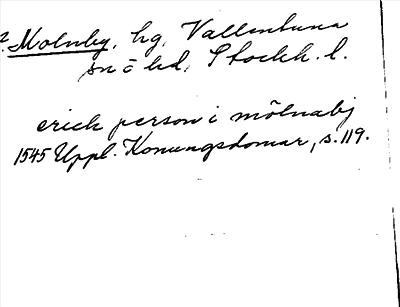 2. Molnby, hg, Vallentuna
sn o hd, Stockh. l.
erick person i mölnabj
1545 Uppl. Konungsdomar, s. 119.